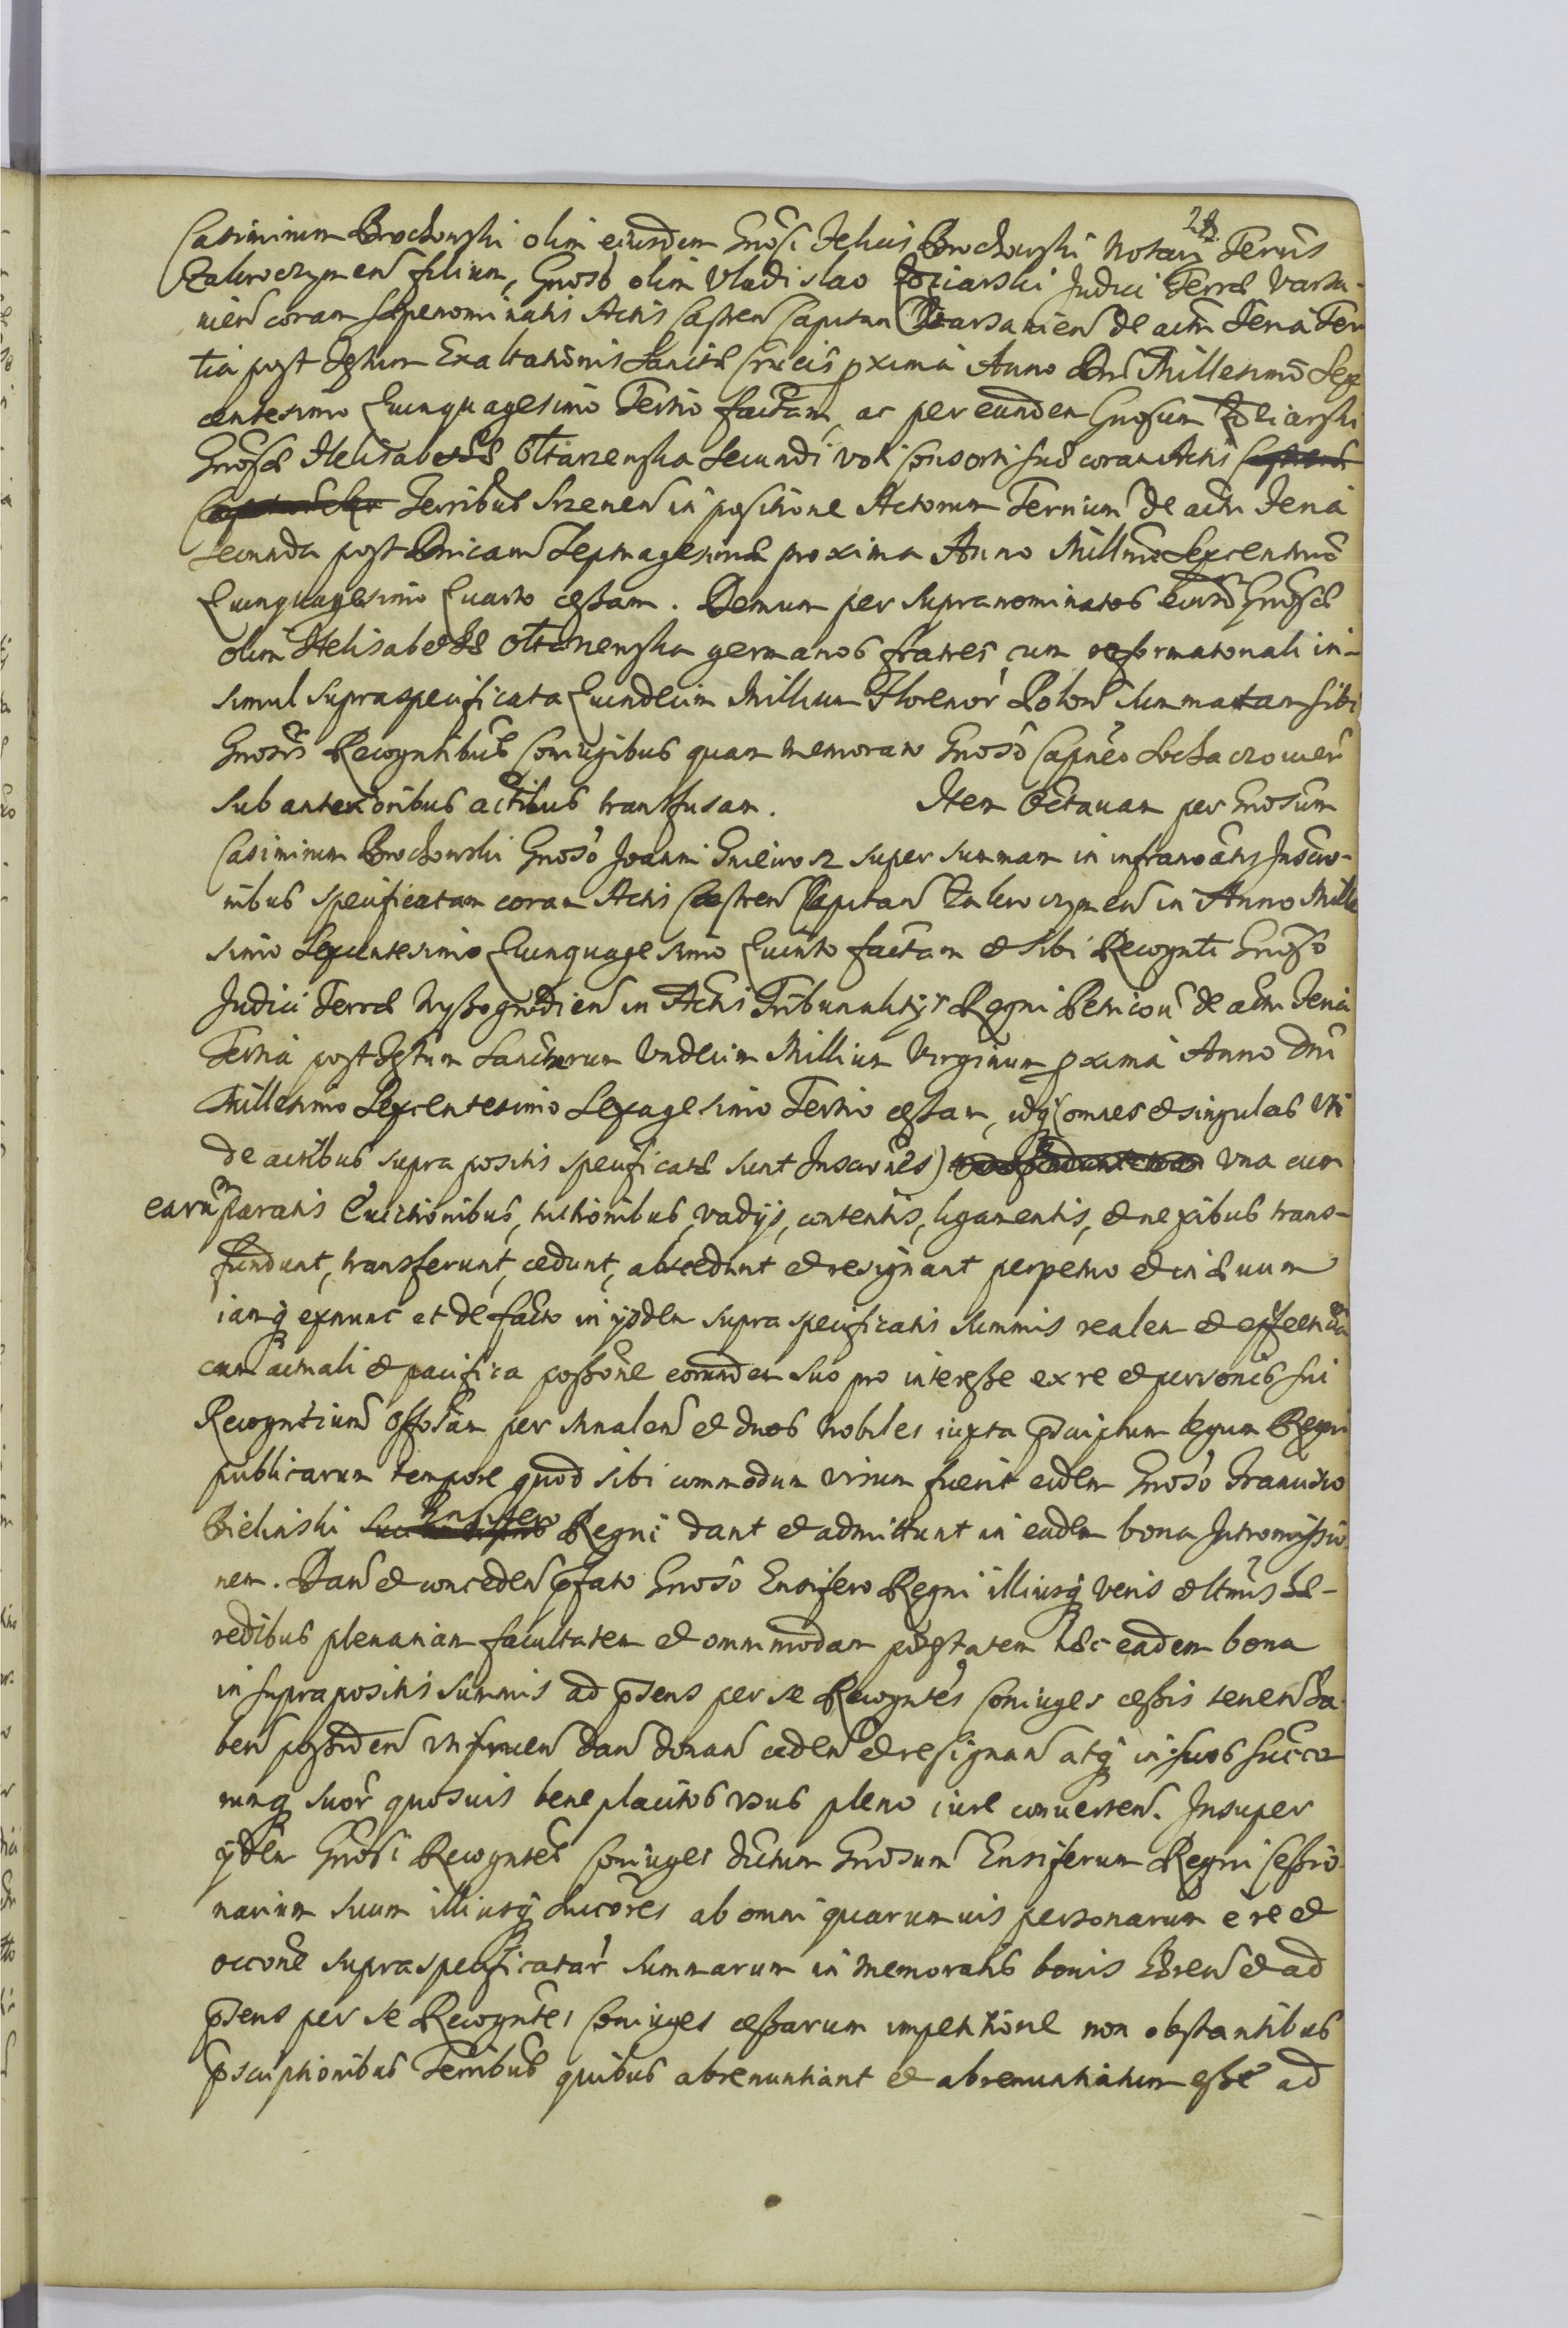 Casimirum Brochowski olim eiusdem Gnosi Felicis Brochowski Notarij Terris
Zakroczymen filium, Gnoso olim Vladislao Judici Terræ Varsa-
uien coram sæpenominatis Actis Castren Capitan Varsauien de actu Feria Ter
tia post festum Exaltationis Sanctæ Crucis pxima Anno Dni Millesimo Sex
centesimo Quinquagesimo Tertio factam, ac per eundem Gnosum
Gnosæ Helisabethæ Ottarzewska secundi voti consorti suæ coram Actis
Terribus Srzenen in positione Actorum Terrium de actu Feria
secunda post Dnicam Septuagesimæ proxima Anno Millmo Sexcentmo
Quinquagesimo Quarto cessam. Demum per supranominatos eiusd Gnosæ
olim Helisabethæ Ottarzewska germanos fratres cum reformationali in-
simul supraspecificata Quindecim Millium Florenor Polon summarum sibi
Gnosis Recogntibus Coniugibus quam memorato Gnoso Capneo Sochaczouien
sub anterioribus actibus transfusam. Item Octauam per Gnosum
Casimirum Brochowski Gnoso Joanni Gniewosz super summam in infranotatis Inscrio-
nibus specificatam coram Actis Castren Capitan Zakroczymen in Anno Mille
simo Sexcentesimo Quinquagesimo Quinto factam et sibi Recognti Gnoso
Judici Terræ Wyssogrodien in Actis Tribunalitijs Regni Petricou de actu Feria
Tertia post festum Sanctarum Vndecim Millium Virginum pxima Anno Dni
Millesimo Sexcentesimo Sexagesimo Tertio cessam, idq (omnes et singulas vti
de actibus supra positis specificatæ sunt Inscrnes) vna cum
earum paratis Euictionibus, tuitionibus, vadijs, contentis, ligamentis, et nexibus trans-
fundunt, transferunt, cedunt, abscedunt et resignant perpetuo et in æuum
iamq exnunc et de facto in ijsdem supra specificatis summis realem et effectiua
cum actuali et pacifica possone eorundem suo pro interesse ex re et personis sui
Recogntium Offosam per Mnalem et duos Nobiles iuxta pscriptum legum Regni
publicarum tempore quod sibi commodum visum fuerit eidem Gnoso Francisco
Bielinski Ensifero Regni dant et admittunt in eadem bona Intromissio
nem. Dan et conceden pfato Gnoso Ensifero Regni illiusq veris et ltmis hæ-
redibus plenariam facultatem et omnimodam ptestatem hæc eadem bona
in suprapositis summis ad psens per se Recogntes Coniuges cessis tenen ha
ben possiden vtifruen dan donan ceden et resignan atq in suos succo
rumq suor quosuis beneplacitos vsus pleno iure conuerten. Insuper
ijdem Gnosi Recogntes Coniuges dictum Gnosum Ensiferum Regni Cessio
narium suum illiusq succores ab omni quarumuis personarum e re et
occone supraspecificatar summarum in memoratis bonis hæren et ad
psens per se Recogntes Coniuges cessarum impetitione non obstantibus
pscriptionibus Terribus quibus abrenuntiant et abrenuntiatum esse ad